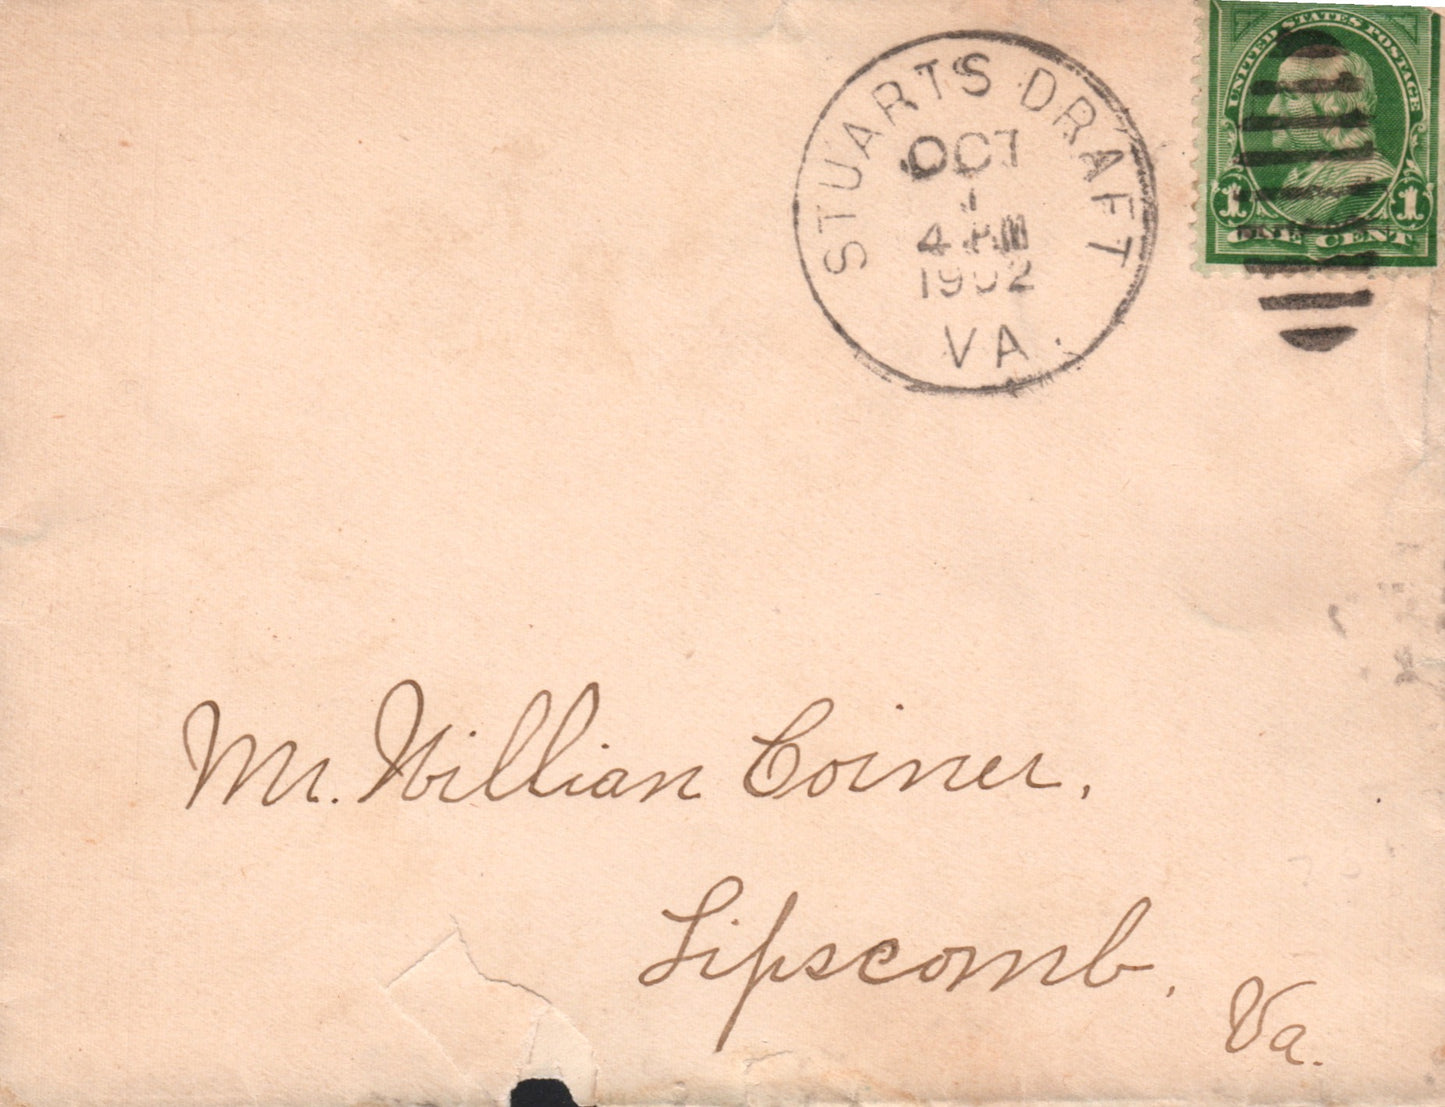 STUARTS DRAFT
OCT
1
4 PM
1902
VA.
UNITED STATES POSTAGE
1 1
ONE CENT
Mr. William Coiner,
Lipscomb,
Va.